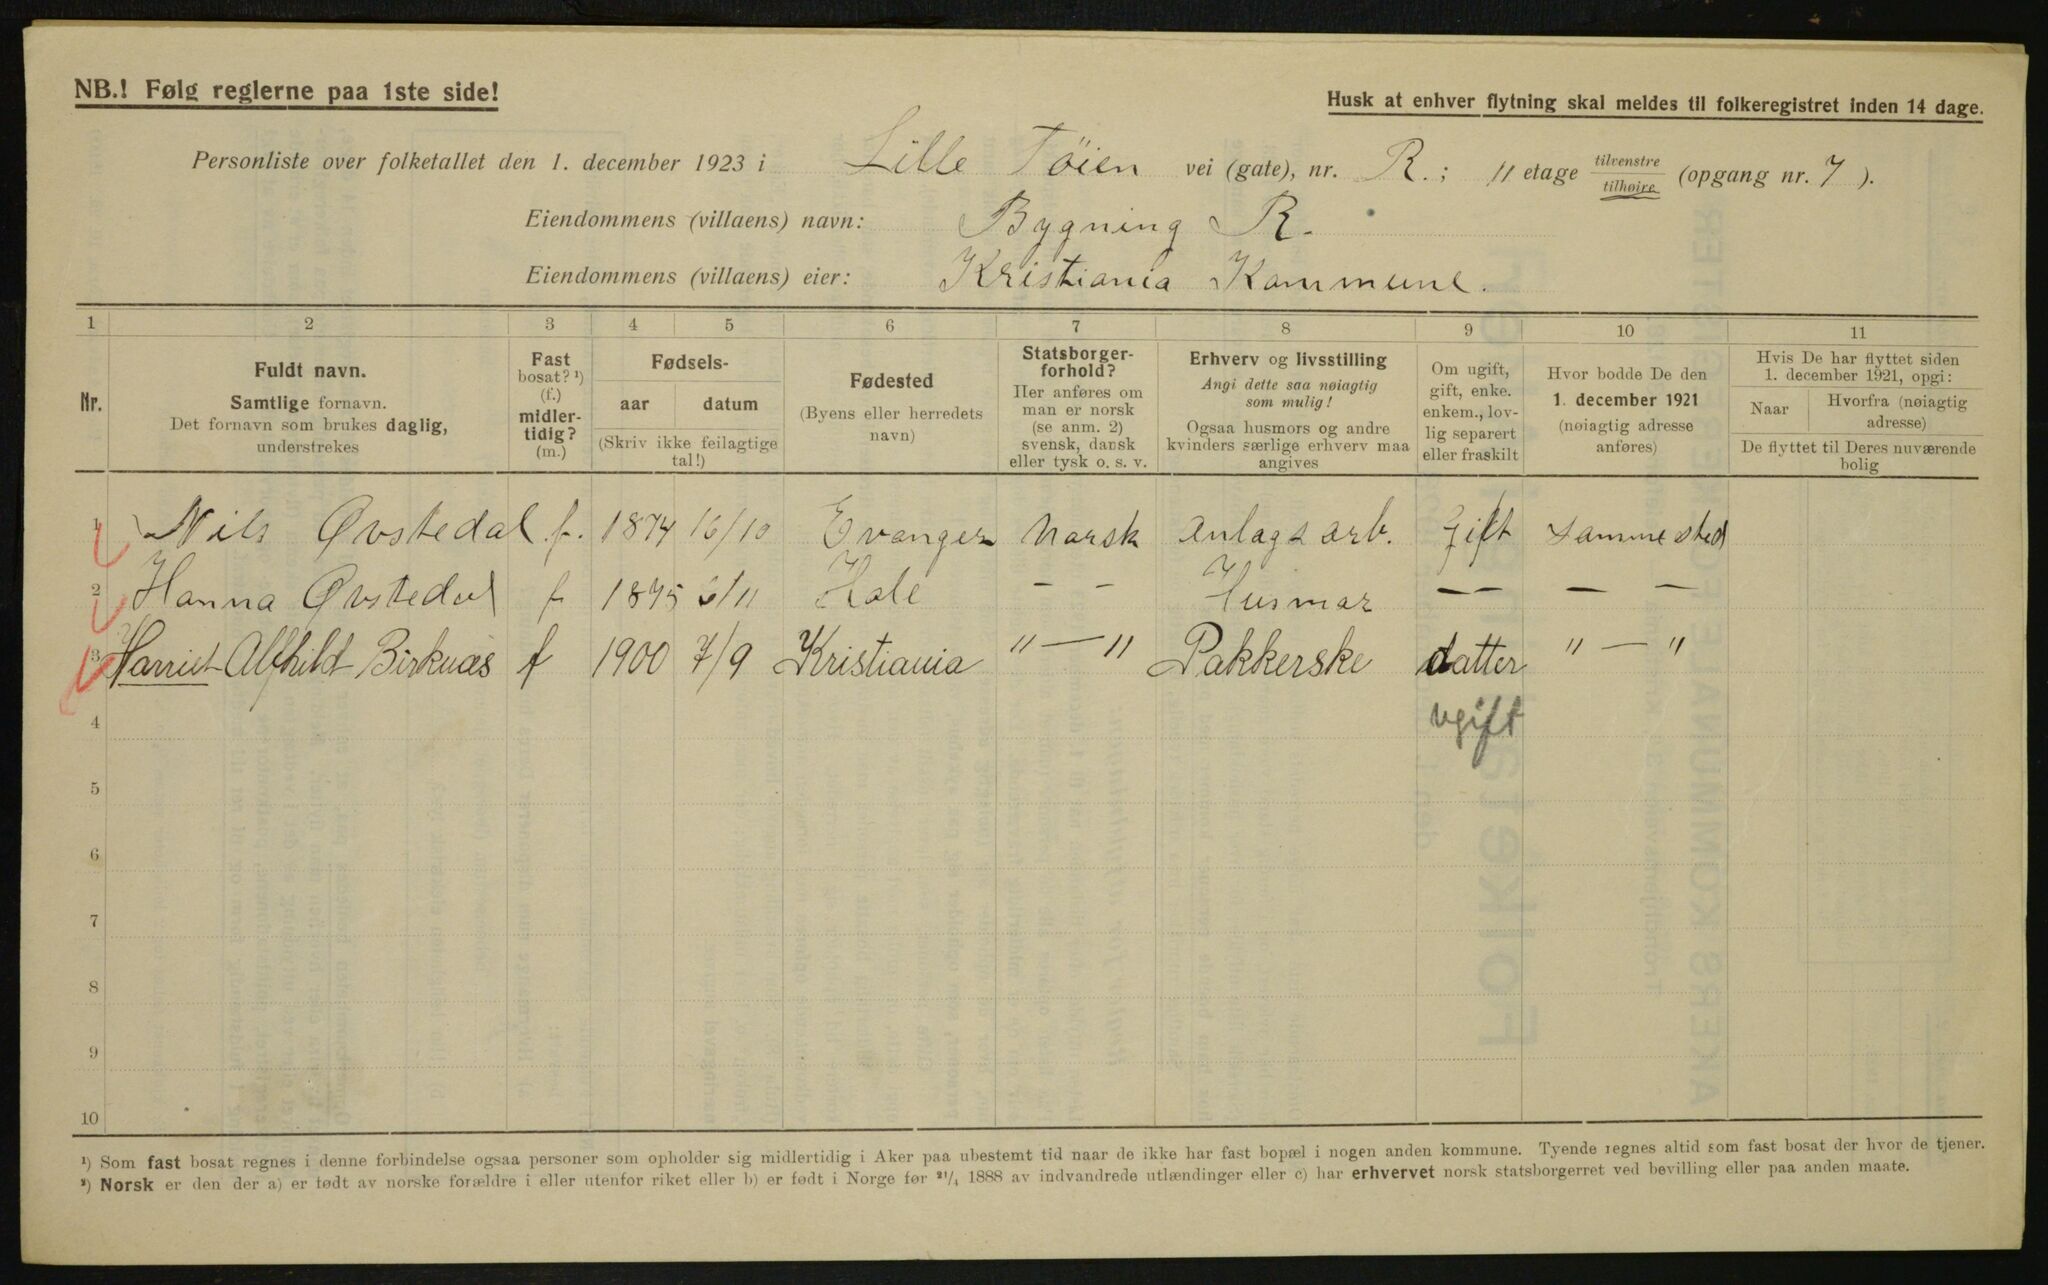 NB.! Følg reglerne paa 1ste side!
Husk at enhver flytning skal meldes til folkeregistret inden 14 dage.
Personliste over folketallet den 1. december 1923 i Lille Töien vei (gate), nr. R.; 11 etage tilvenstre / tilhøire (opgang nr. 7).
Eiendommens (villaens) navn: Bygning R.
Eiendommens (villaens) eier: Kristiania Kommune.
1 2 3 4 5 6 7 8 9 10 11
Nr.
Fuldt navn.
Samtlige fornavn.
Det fornavn som brukes daglig,
understrekes
Fast
bosat? ¹)
(f.)
midler-
tidig?
(m.)
Fødsels-
aar datum
(Skriv ikke feilagtige
tal!)
Fødested
(Byens eller herredets
navn)
Statsborger-
forhold?
Her anføres om
man er norsk
(se anm. 2)
svensk, dansk
eller tysk o. s. v.
Erhverv og livsstilling
Angi dette saa nøiagtig
som mulig!
Ogsaa husmors og andre
kvinders særlige erhverv maa
angives
Om ugift,
gift, enke.
enkem., lov-
lig separert
eller fraskilt
Hvor bodde De den
1. december 1921
(nøiagtig adresse
anføres)
Hvis De har flyttet siden
1. december 1921, opgi:
Naar
Hvorfra (nøiagtig
adresse)
De flyttet til Deres nuværende
bolig
1 Nils Øvstedal f. 1874 16/10 Evanger Norsk Anlags arb. Gift Sammested
2 Hanna Øvstedal f 1875 6/11 Hole — — Husmor — — — —
3 Harriet Alfhild Birknæs f 1900 7/9 Kristiania " — " Pakkerske datter " — "
4 ugift
5
6
7
8
9
10
¹) Som fast bosat regnes i denne forbindelse ogsaa personer som opholder sig midlertidig i Aker paa ubestemt tid naar de ikke har fast bopæl i nogen anden kommune. Tyende regnes altid som fast bosat der hvor de tjener.
²) Norsk er den der a) er født av norske forældre i eller utenfor riket eller b) er født i Norge før ²¹/₄ 1888 av indvandrede utlændinger eller c) har erhvervet norsk statsborgerret ved bevilling eller paa anden maate.